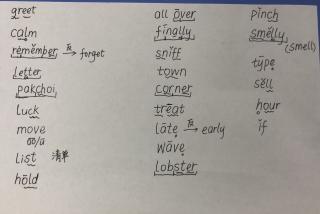 greet
calm
remember 反→ forget
Letter
pakchoi
luck
move
oo/u
list 清单
hōld
all ōver
finally
sniff
town
corner
trēat
lāte 反→ early
wāve
lobster
Pinch
smelly (smell)
tȳpe
sĕll
hour
if